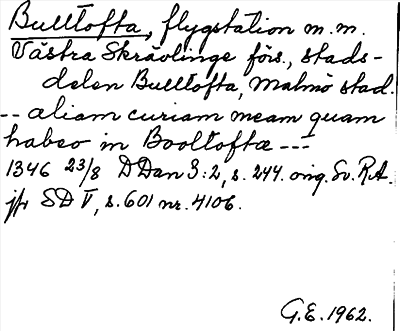 Bulltofta, flygstation m.m.
Västra Skrävlinge förs., stads-
delen Bulltofta, Malmö stad.
-- aliam curiam meam quam
habeo in Booltoftæ ---
1346 23/8 DDan 3:2, s. 244. orig. Sv. RA.
jfr SD V, s. 601 nr. 4106.
G.E. 1962.